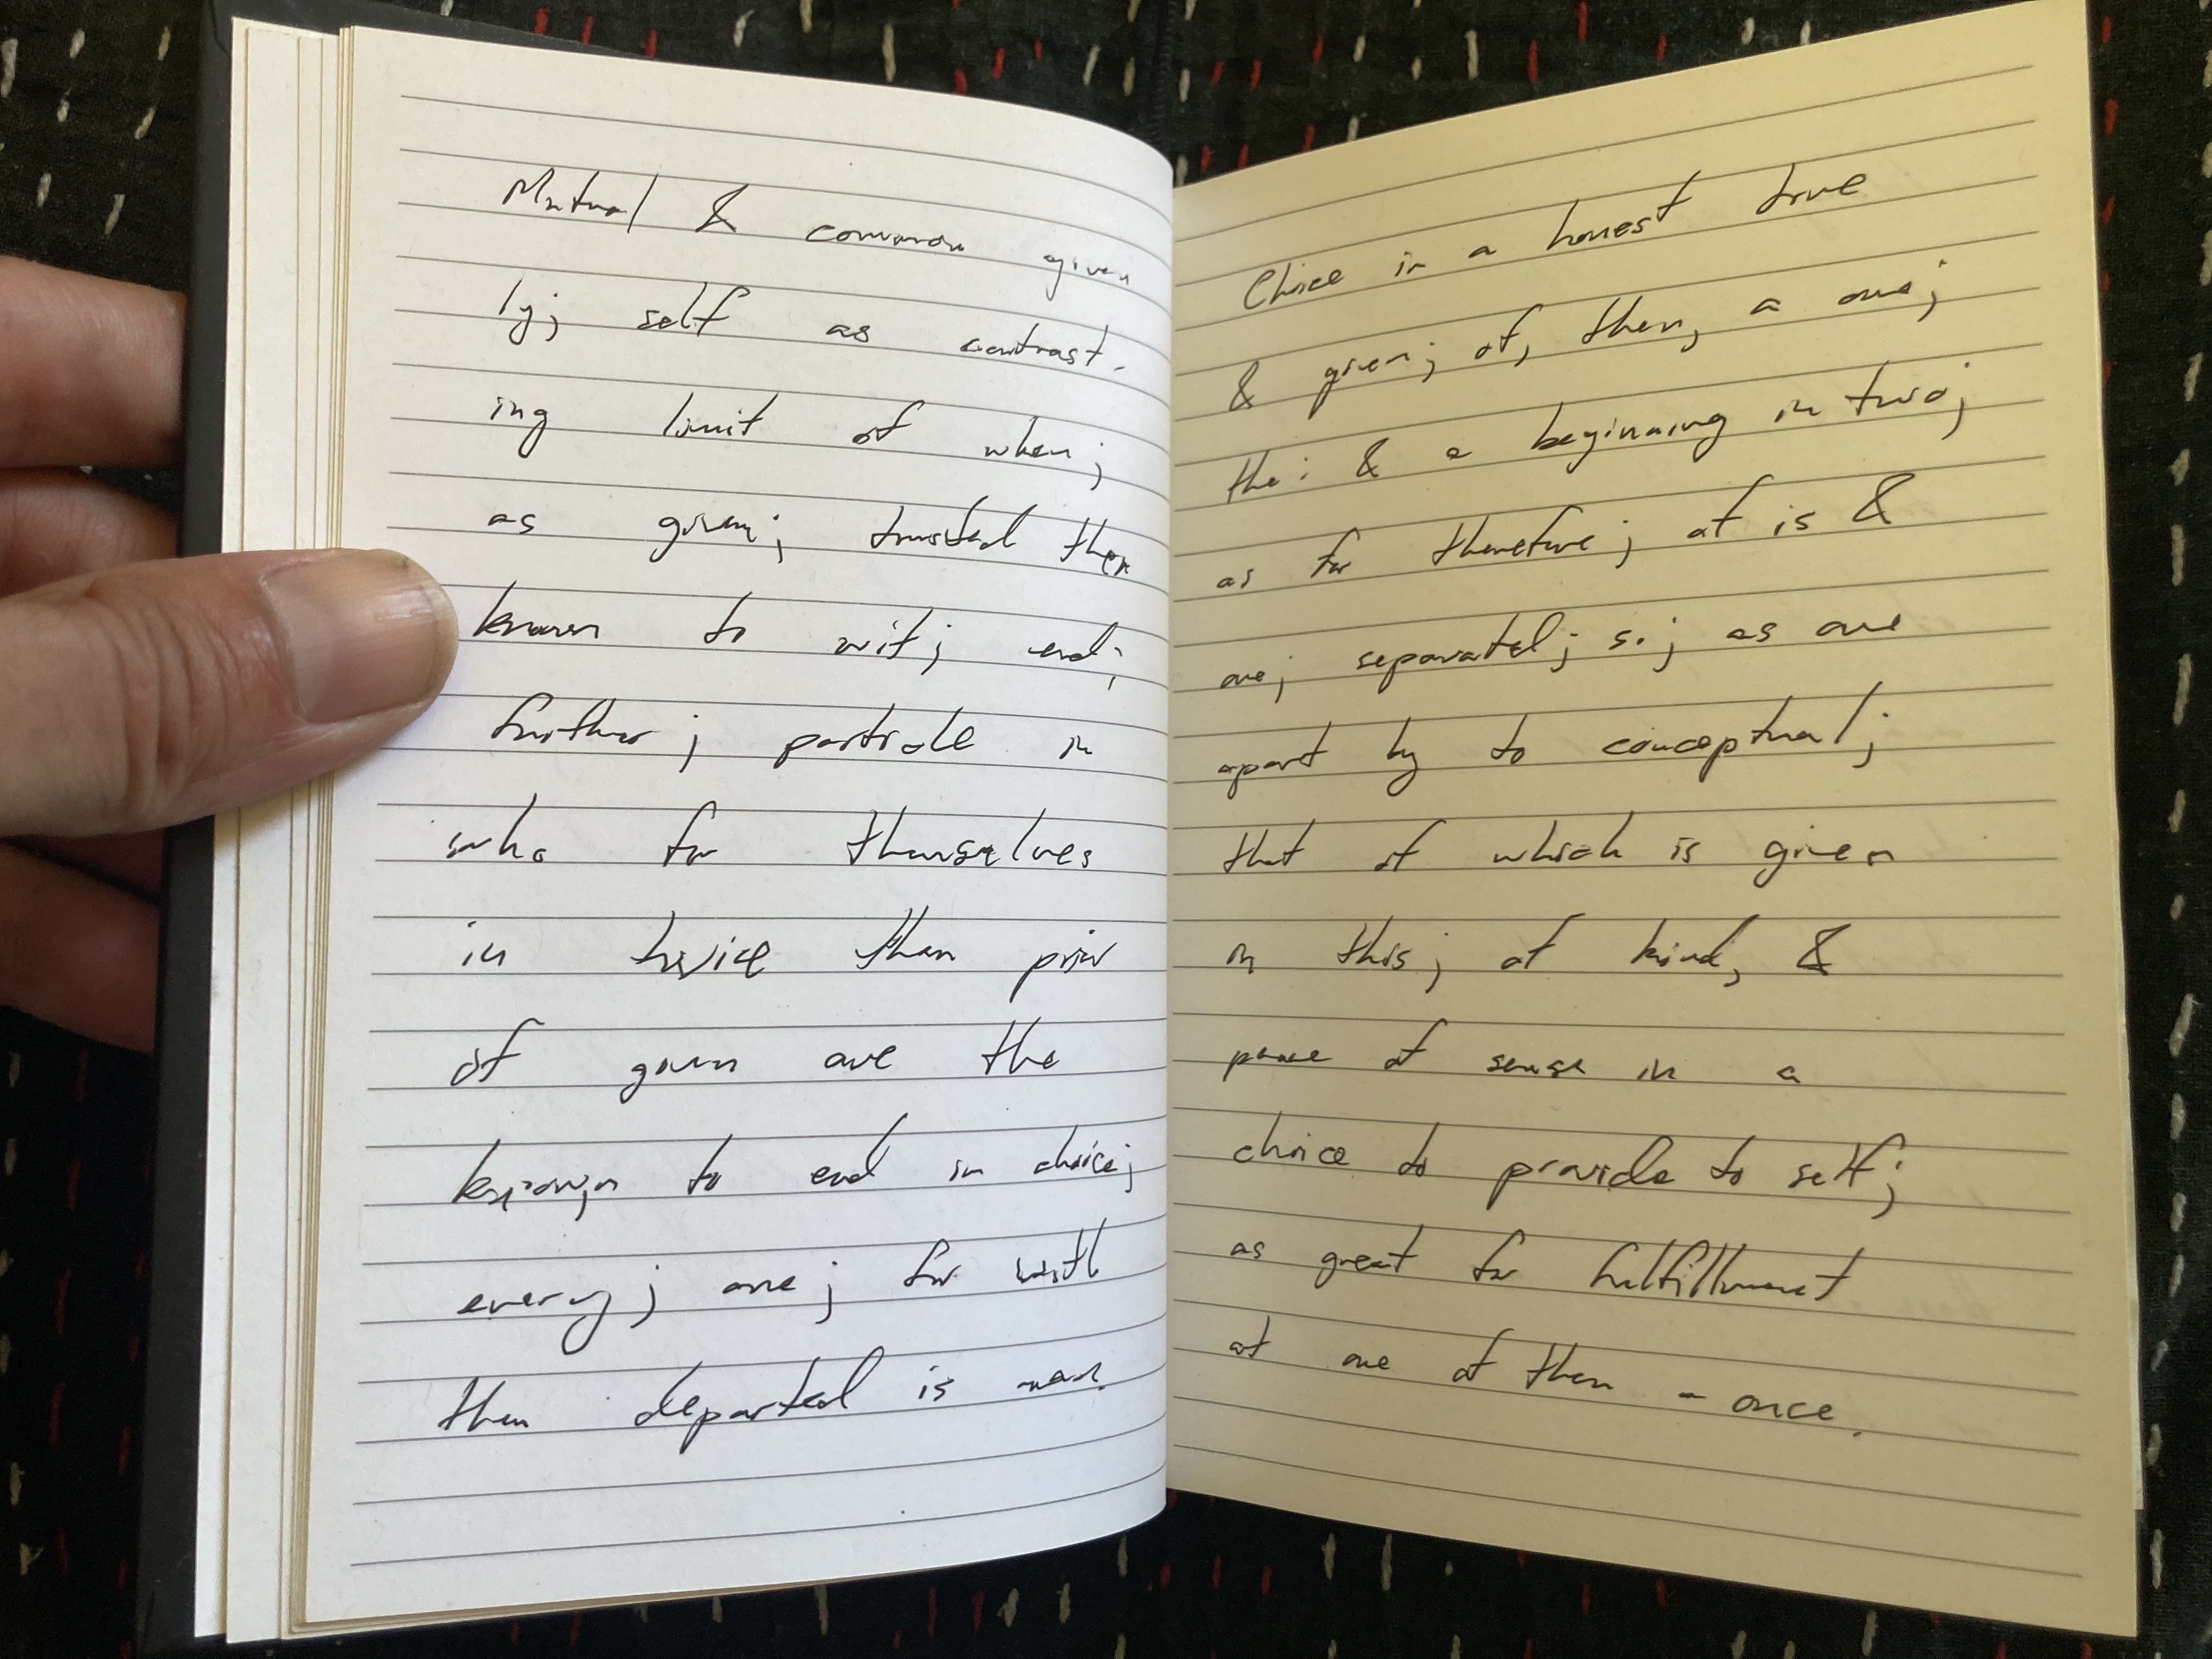 Mutual & common given
ly; self as contrast-
ing limit of when;
as given; trusted then
known to wit; end;
further; particle in
who for themselves
in twice than prior
of given are the
known to end in choice;
every; one; for with
then departed is near.
Choice in a honest true
& given; of, then, a one;
the: & a beginning in two;
as for therefore; of is &
one; separated; so; as one
apart by to conceptual;
that of which is given
in this; of kind, &
peace of sense in a
choice to provide to self;
as great for fulfillment
at one of then - once.